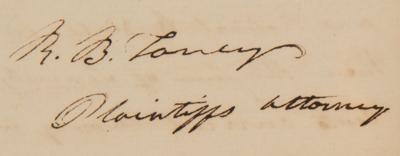 R. B. Taney
Plaintiffs attorney